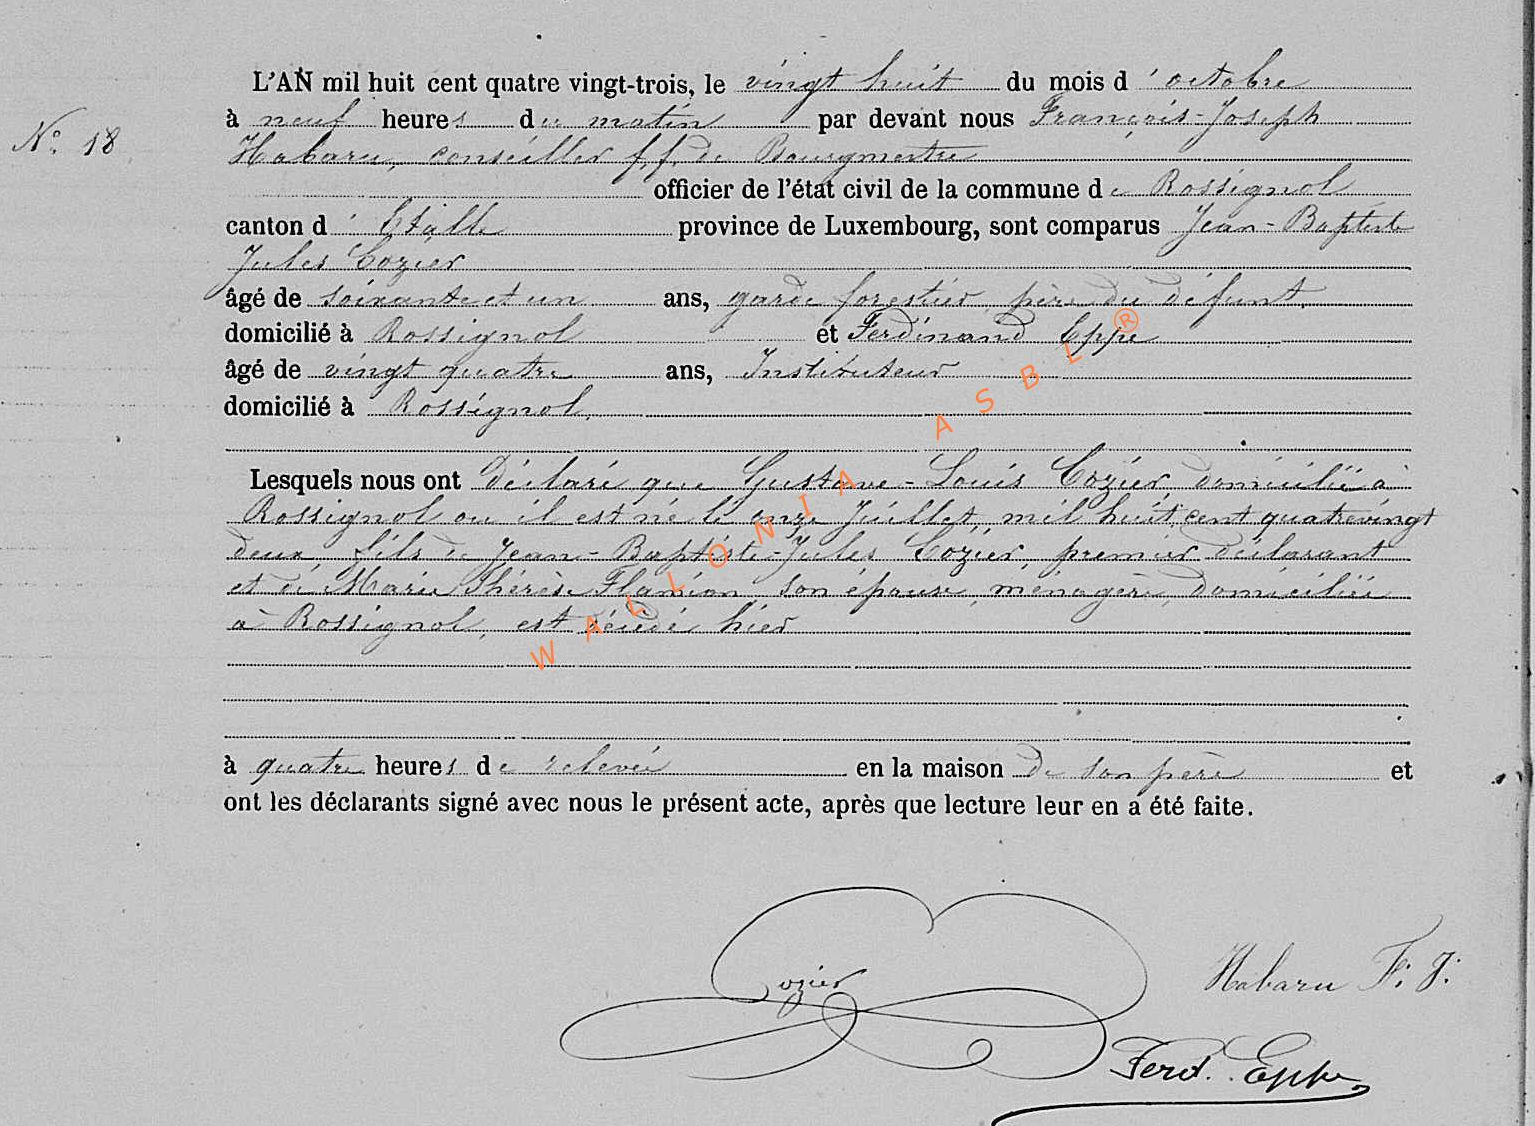 L'AN mil huit cent quatre vingt-trois, le vingt huit du mois d'octobre
N° 18
à neuf heures du matin par devant nous François-Joseph
Habaru, conseiller f.f. de Bourgmestre
officier de l'état civil de la commune de Rossignol
canton d'Etalle province de Luxembourg, sont comparus Jean-Baptiste
Jules Cozier
âgé de soixante et un ans, garde forestier, père du défunt,
domicilié à Rossignol et Ferdinand Eppe
âgé de vingt quatre ans, Instituteur
domicilié à Rossignol,
Lesquels nous ont Déclaré que Gustave-Louis Cozier, domicilié à
Rossignol ou il est né le onze Juillet, mil huit cent quatrevingt
deux fils de Jean-Baptiste-Jules Cozier, premier déclarant
et de Marie Thérèse Flamion, son épouse, ménagère, domiciliée
à Rossignol, est décédé hier
à quatre heures de relevée en la maison de son père et
ont les déclarants signé avec nous le présent acte, après que lecture leur en a été faite.
Cozier
Habaru F. J.
Ferd. Eppe
WALLONIA ASBL ®